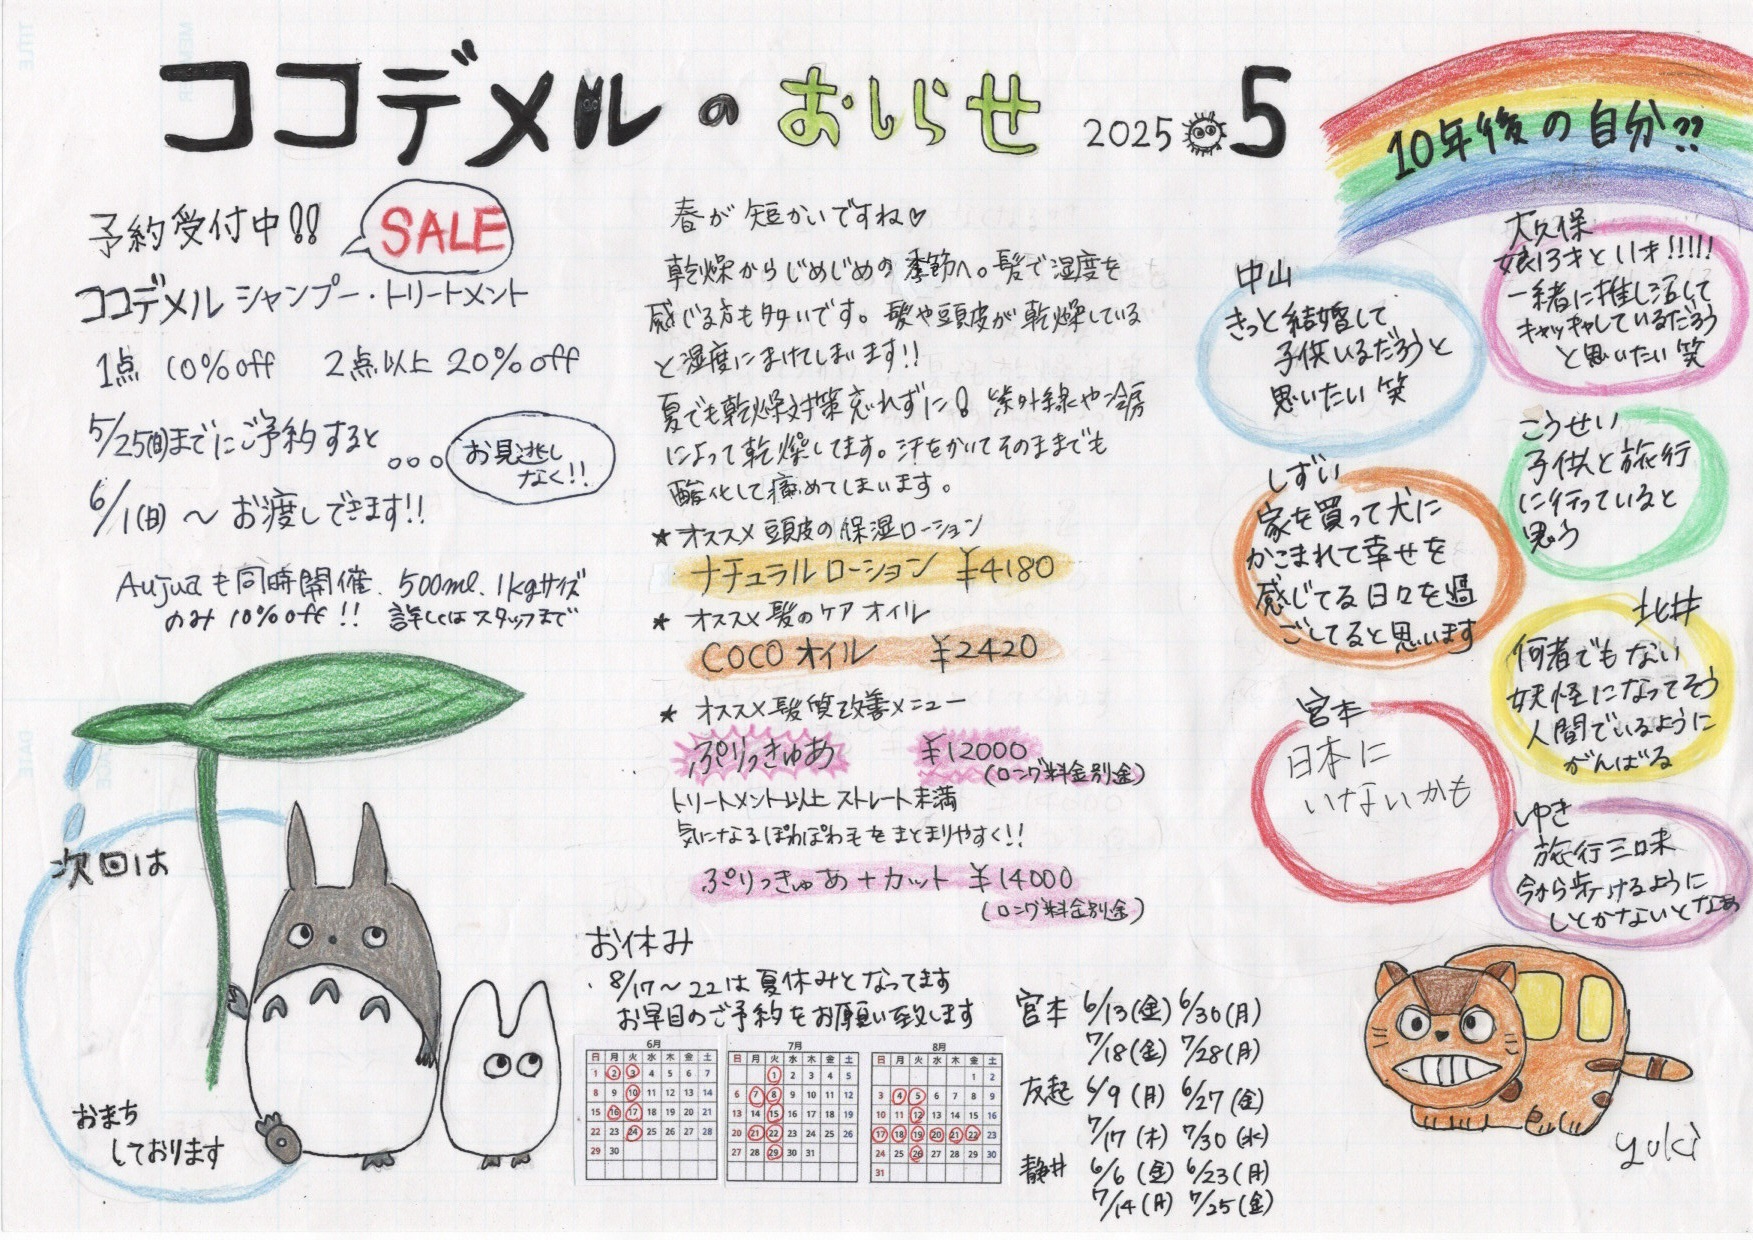 ココデメルのおしらせ 2025 5
予約受付中!!
SALE
ココデメル シャンプー・トリートメント
1点 10%off 2点以上 20%off
5/25(日)までにご予約すると
お見逃し
なく!!
6/1(日)〜お渡しできます!!
Aujuaも同時開催. 500ml. 1kgサイズ
のみ 10%off!! 詳しくはスタッフまで
次回は
おまち
しております
春が短かいですね♡
乾燥からじめじめの季節へ。髪で湿度を
感じる方も多いです。髪や頭皮が乾燥している
と湿度にまけてしまいます!!
夏でも乾燥対策忘れずに! 紫外線や冷房
によって乾燥してます。汗をかいてそのままでも
酸化して痛めてしまいます。
★オススメ頭皮の保湿ローション
ナチュラルローション ¥4180
★オススメ髪のケアオイル
COCOオイル ¥2420
★オススメ髪質改善メニュー
ぷりっきゅあ ¥12000
(ロング料金別途)
トリートメント以上ストレート未満
気になるぽわぽわ毛をまとまりやすく!!
ぷりっきゅあ+カット ¥14000
(ロング料金別途)
お休み
8/17〜22は夏休みとなってます
お早目のご予約をお願い致します
6月
日 月 火 水 木 金 土
1 2 3 4 5 6 7
8 9 10 11 12 13 14
15 16 17 18 19 20 21
22 23 24 25 26 27 28
29 30
7月
日 月 火 水 木 金 土
1 2 3 4 5
6 7 8 9 10 11 12
13 14 15 16 17 18 19
20 21 22 23 24 25 26
27 28 29 30 31
8月
日 月 火 水 木 金 土
1 2
3 4 5 6 7 8 9
10 11 12 13 14 15 16
17 18 19 20 21 22 23
24 25 26 27 28 29 30
31
宮本 6/13(金) 6/30(月)
7/18(金) 7/28(月)
友起 6/9(月) 6/27(金)
7/17(木) 7/30(水)
静井 6/6(金) 6/23(月)
7/14(月) 7/25(金)
10年後の自分??
中山
きっと結婚して
子供いるだろうと
思いたい 笑
大久保
娘13才といえ!!!!!
一緒に推し活して
キャッキャしているだろう
と思いたい 笑
しずい
家を買って犬に
かこまれて幸せを
感じてる日々を過
ごしてると思います
こうせい
子供と旅行
に行っていると
思う
北井
何者でもない
妖怪になってそう
人間でいるように
がんばる
宮本
日本に
いないかも
ゆき
旅行三昧
今から歩けるように
しとかないとなあ
yuki